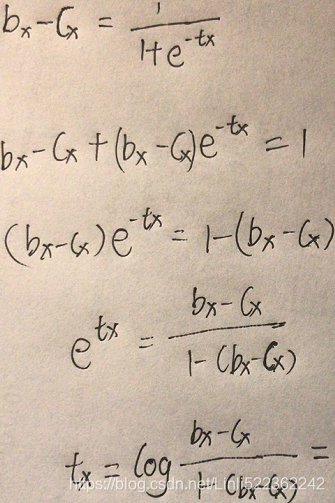 bx - Cx = 1 / (1+e^-tx)
bx - Cx + (bx - Cx)e^-tx = 1
(bx - Cx)e^-tx = 1 - (bx - Cx)
e^tx = (bx - Cx) / (1 - (bx - Cx))
tx = log (bx - Cx) / (1 - (bx - Cx)) =
https://blog.csdn.net/Linli522362242